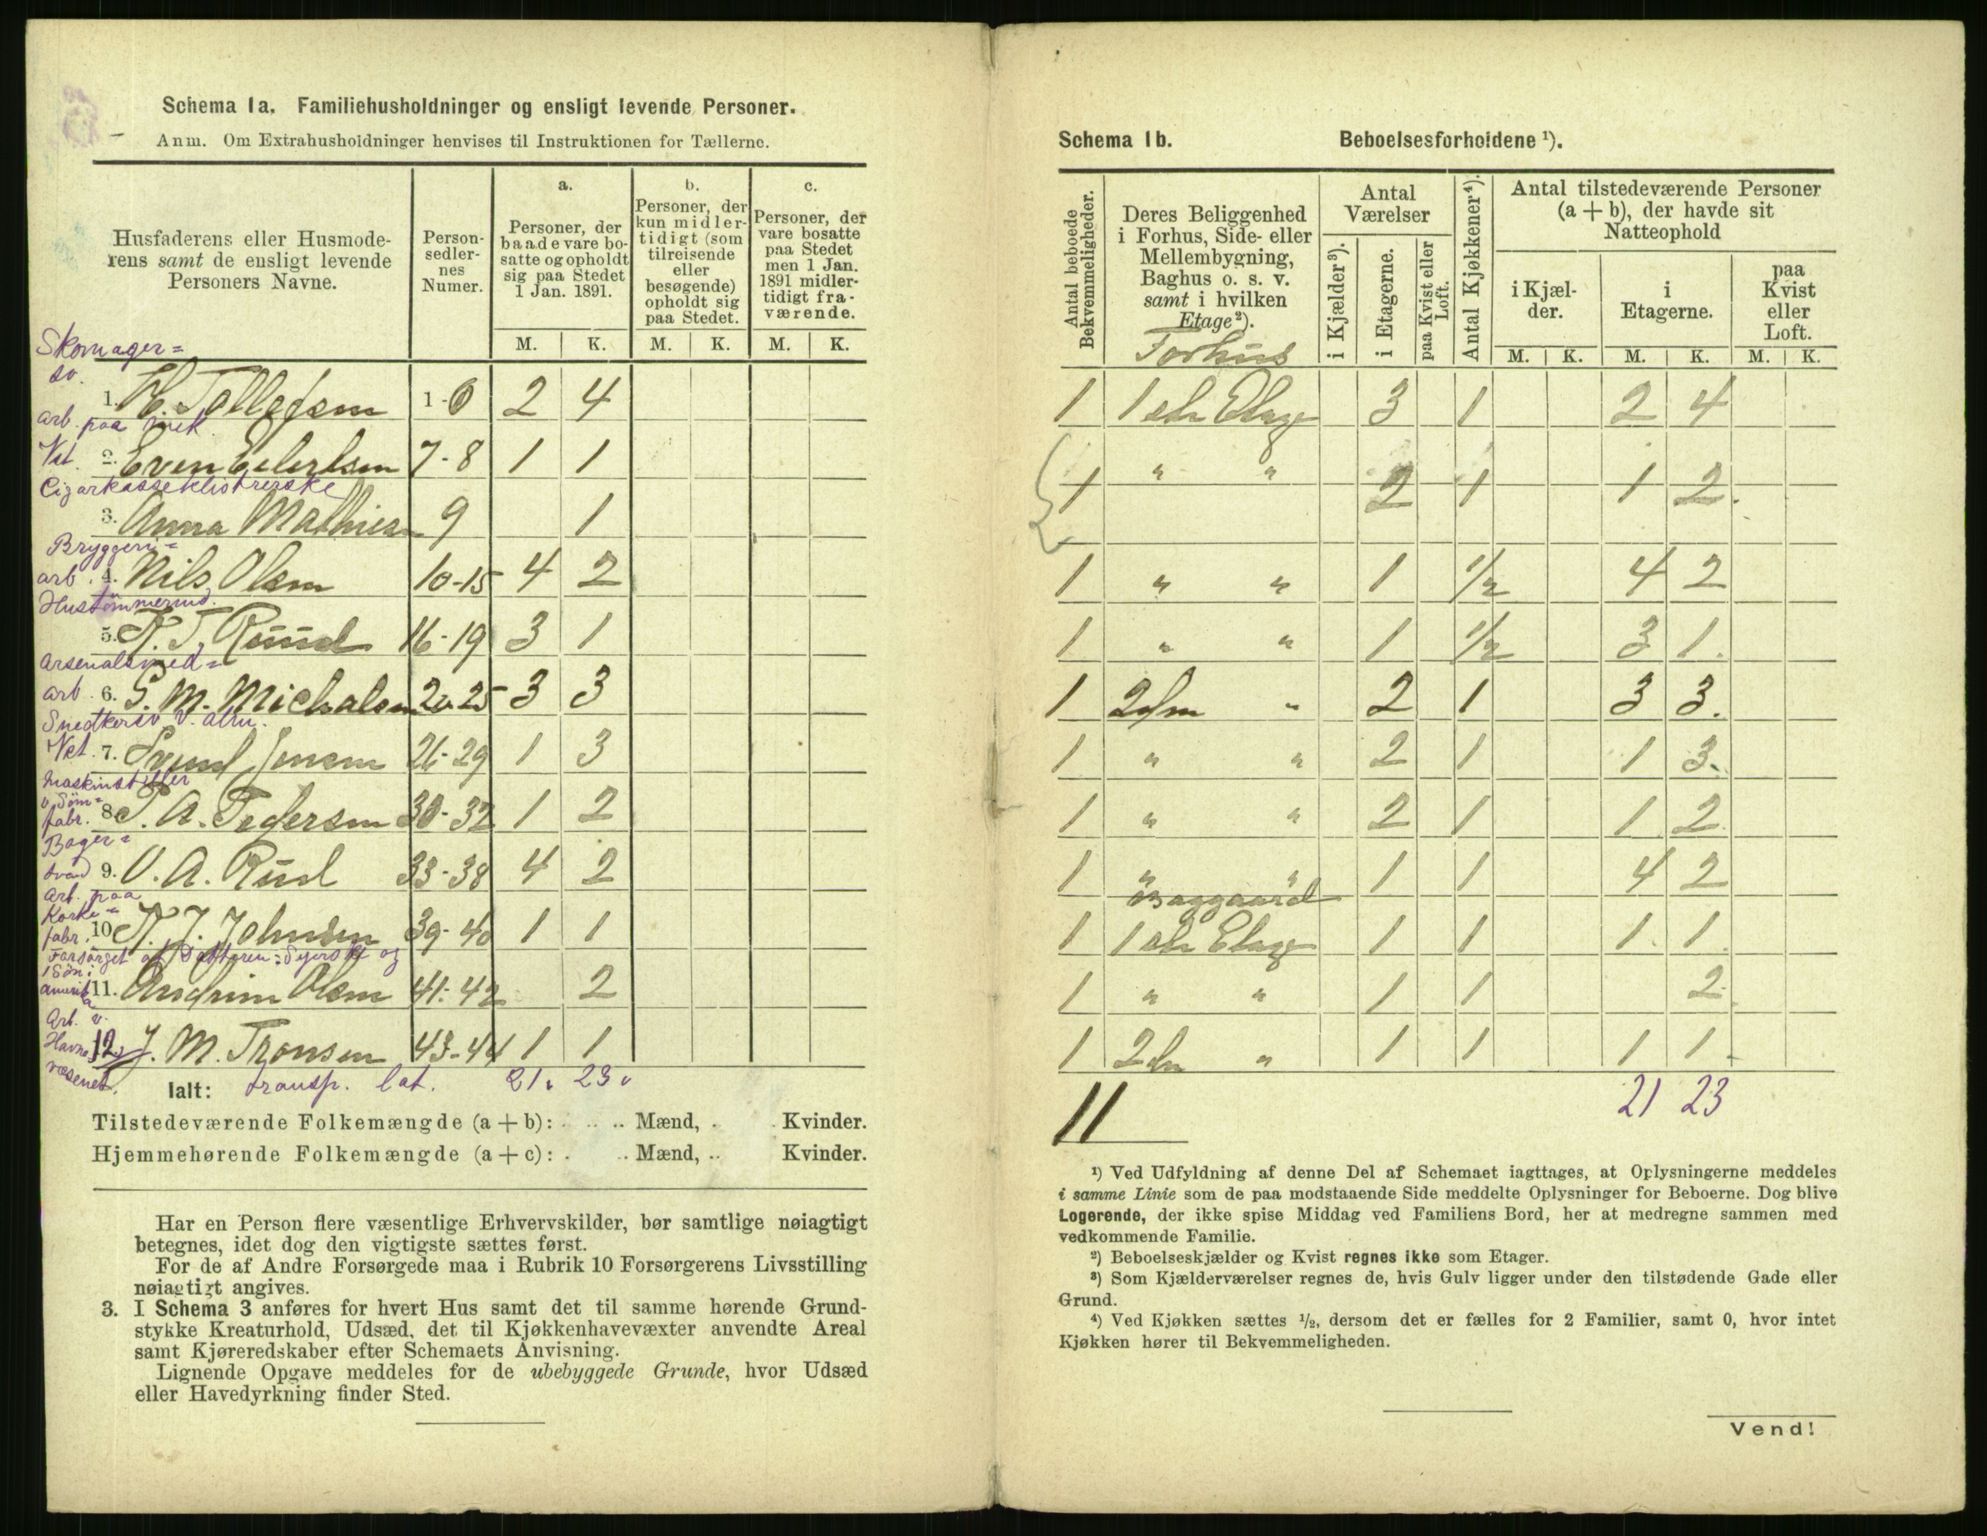 Schema 1a. Familiehusholdninger og ensligt levende Personer.
Anm. Om Extrahusholdninger henvises til Instruktionen for Tællerne.
Husfaderens eller Husmoderens samt de ensligt levende Personers Navne.
Personsedlernes Numer.
a. Personer, der baade vare bosatte og opholdt sig paa Stedet 1 Jan. 1891.
b. Personer, der kun midlertidigt (som tilreisende eller besøgende) opholdt sig paa Stedet.
c. Personer, der vare bosatte paa Stedet men 1 Jan. 1891 midlertidigt fraværende.
M. K. M. K. M. K.
Skomager=
sv.
1. H. Tollefsen 1-6 2 4
arb. paa mek.
Vst. 2. Even Eilertsen 7-8 1 1
Cigarkasseklistrerske
3. Anna Mathiesen 9 1
Bryggeri=
arb. 4. Nils Olsen 10-15 4 2
Hustømmermd.
5. K. T. Ruud 16-19 3 1
Arsenalsmed=
arb. 6. S. M. Michalsen 20-25 3 3
Snedkersv v. alm.
Vst. 7. Svend Jensen 26-29 1 3
Maskinstiller
v Søm=
fabr. 8. P. A. Pedersen 30-32 1 2
Bager=
svend 9. O. A. Ruud 33-38 4 2
Arb. paa
Korke=
fabr. 10. N. J. Johnsen 39-40 1 1
Forsørget af Datteren: Syerske og
1 Søn i
Amerika 11. Andrine Olsen 41-42 2
Arb. v.
Havne 12. J. M. Tronsen 43-44 1 1
væsenet.
Ialt: transp. lat. 21. 23.
Tilstedeværende Folkemængde (a + b): Mænd, Kvinder.
Hjemmehørende Folkemængde (a + c): Mænd, Kvinder.
Har en Person flere væsentlige Erhvervskilder, bør samtlige nøiagtigt
betegnes, idet dog den vigtigste sættes først.
For de af Andre Forsørgede maa i Rubrik 10 Forsørgerens Livsstilling
nøiagtigt angives.
3. I Schema 3 anføres for hvert Hus samt det til samme hørende Grund-
stykke Kreaturhold, Udsæd, det til Kjøkkenhavevæxter anvendte Areal
samt Kjøreredskaber efter Schemaets Anvisning.
Lignende Opgave meddeles for de ubebyggede Grunde, hvor Udsæd
eller Havedyrkning finder Sted.
Schema 1b. Beboelsesforholdene ¹).
Antal beboede Bekvemmeligheder.
Deres Beliggenhed i Forhus, Side- eller Mellembygning, Baghus o. s. v. samt i hvilken Etage ²).
Antal Værelser
i Kjælder ³).
i Etagerne.
paa Kvist eller Loft.
Antal Kjøkkener ⁴).
Antal tilstedeværende Personer (a + b), der havde sit Natteophold
i Kjælder.
i Etagerne.
paa Kvist eller Loft.
M. K. M. K. M. K.
Forhus
1 1ste Etage 3 1 2 4
1 " " 2 1 1 2.
1 " " 1 1/2 4 2
1 " " 1 1/2 3 1.
1 2den " 2 1 3 3.
1 " " 2 1 1 3.
1 " " 2 1 1 2.
1 " " 1 1 4 2
Baggaard
1 1ste Etage 1 1 1 1.
1 " " 1 1 2.
1 2den " 1 1 1 1.
11 21 23
¹) Ved Udfyldning af denne Del af Schemaet iagttages, at Oplysningerne meddeles
i samme Linie som de paa modstaaende Side meddelte Oplysninger for Beboerne. Dog blive
Logerende, der ikke spise Middag ved Familiens Bord, her at medregne sammen med
vedkommende Familie.
²) Beboelseskjælder og Kvist regnes ikke som Etager.
³) Som Kjælderværelser regnes de, hvis Gulv ligger under den tilstødende Gade eller
Grund.
⁴) Ved Kjøkken sættes ½, dersom det er fælles for 2 Familier, samt 0, hvor intet
Kjøkken hører til Bekvemmeligheden.
Vend!